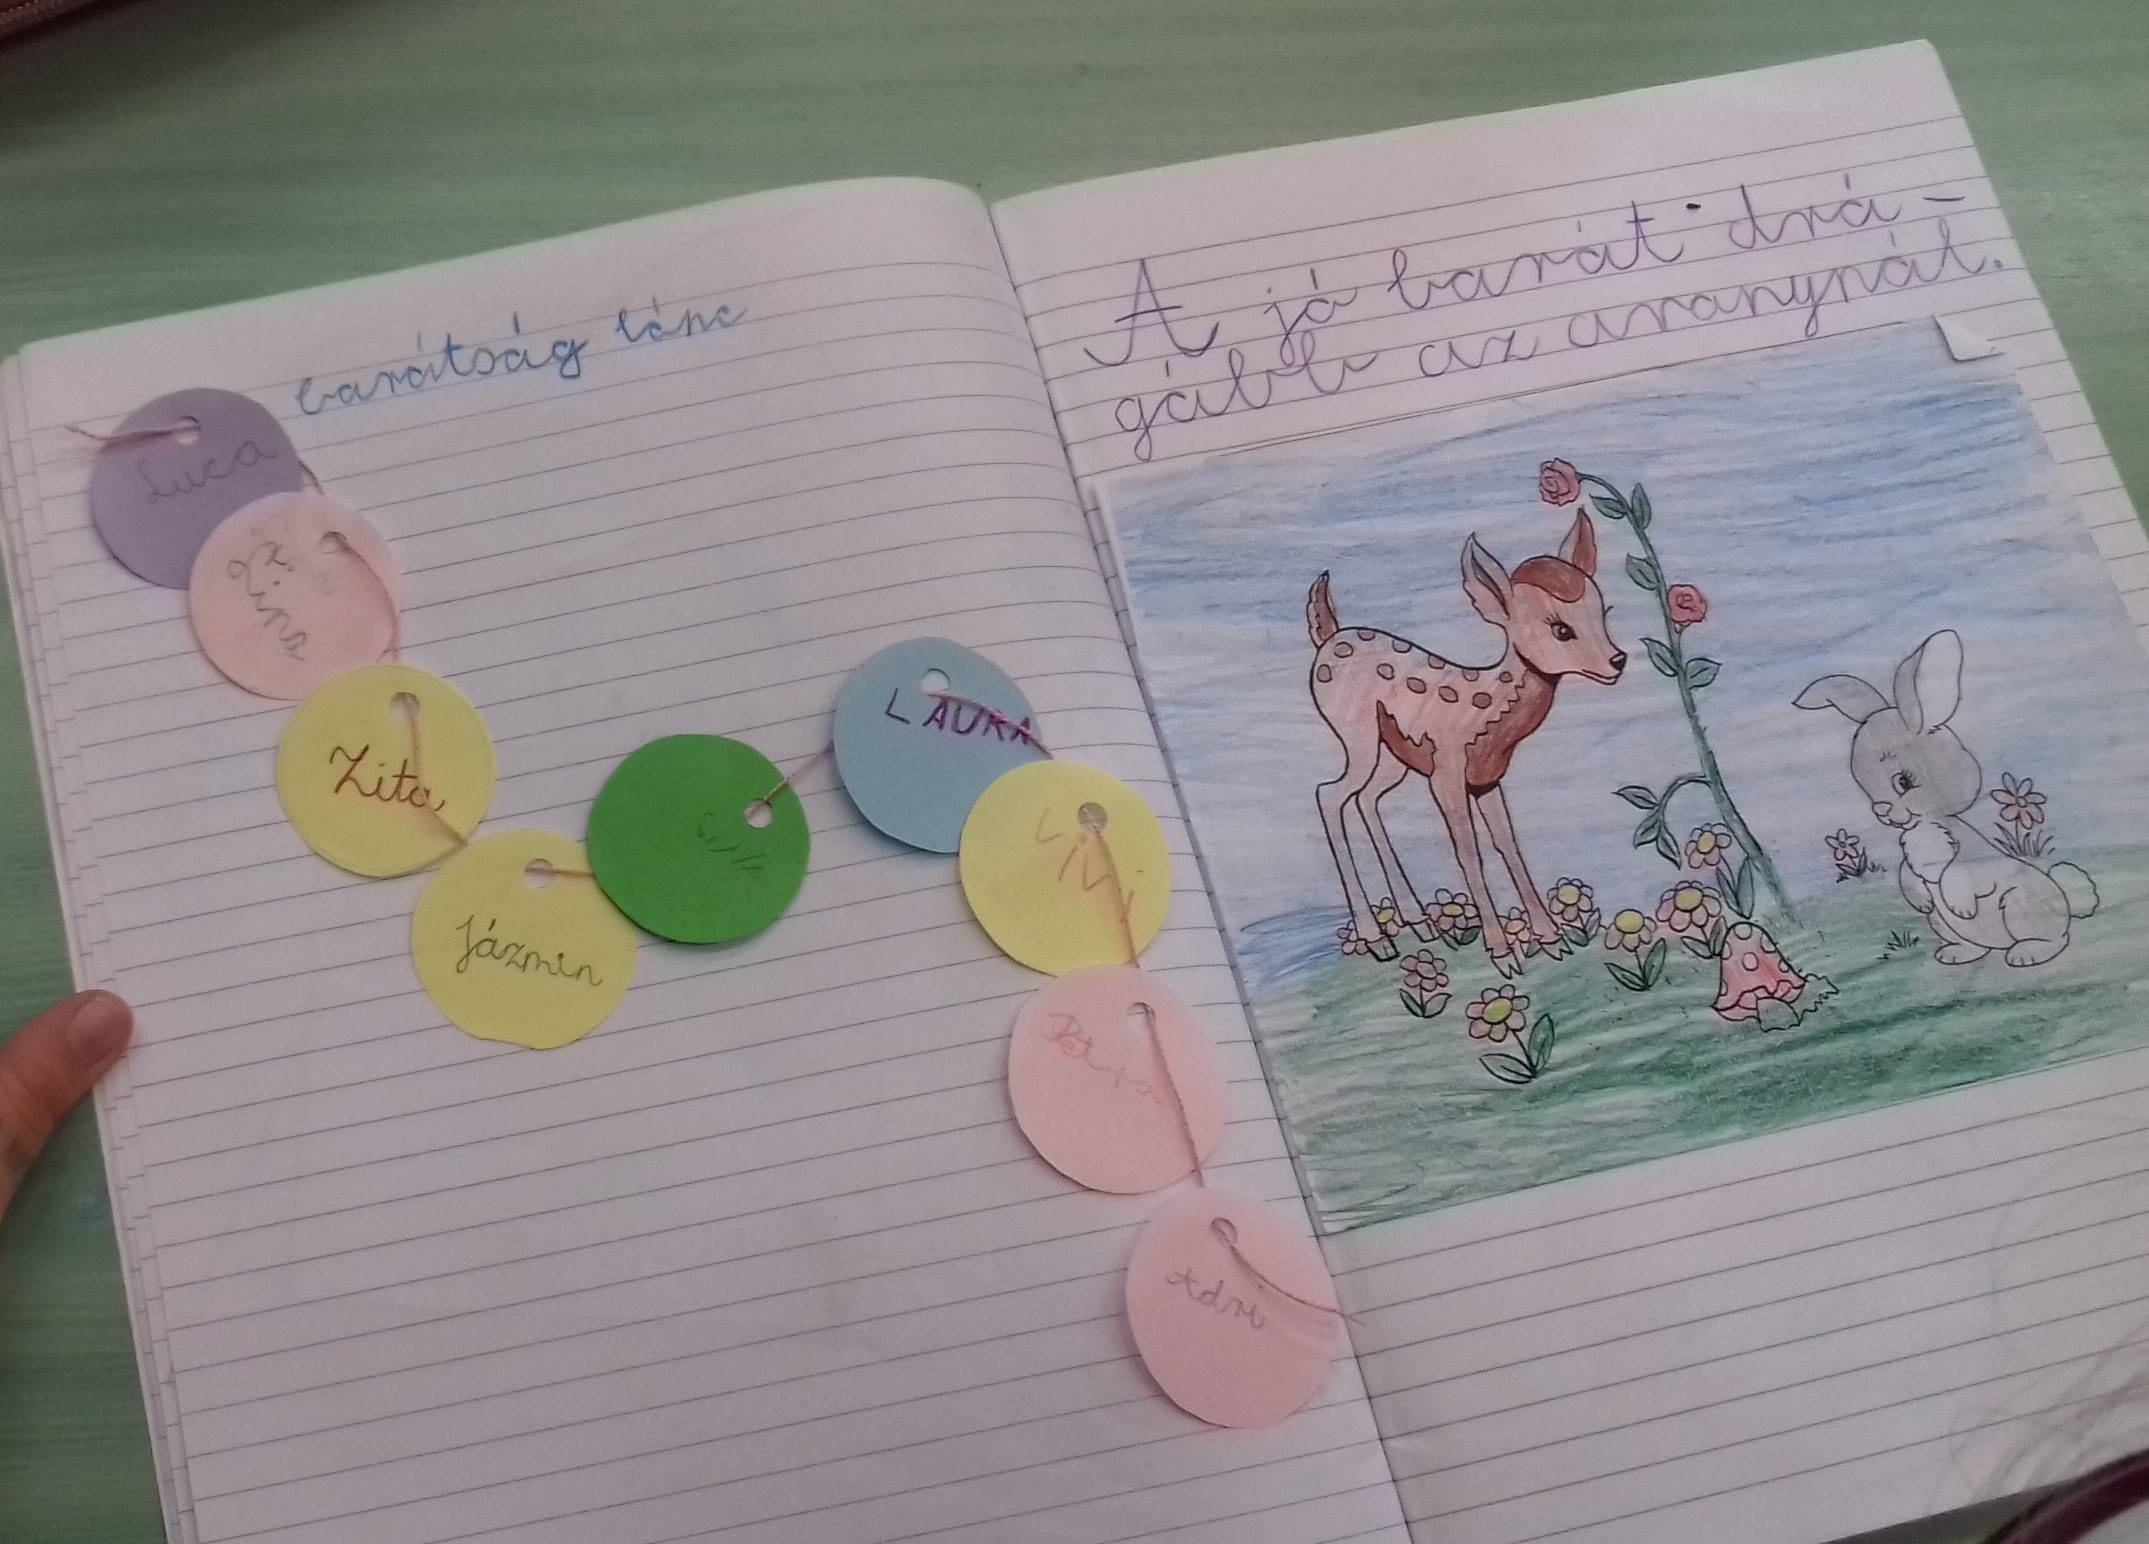 barátság lánc
Luca
Lina
Zita
Jázmin
LAURA
Lili
Petra
Adri
A jó barát drá-
gább az aranynál.